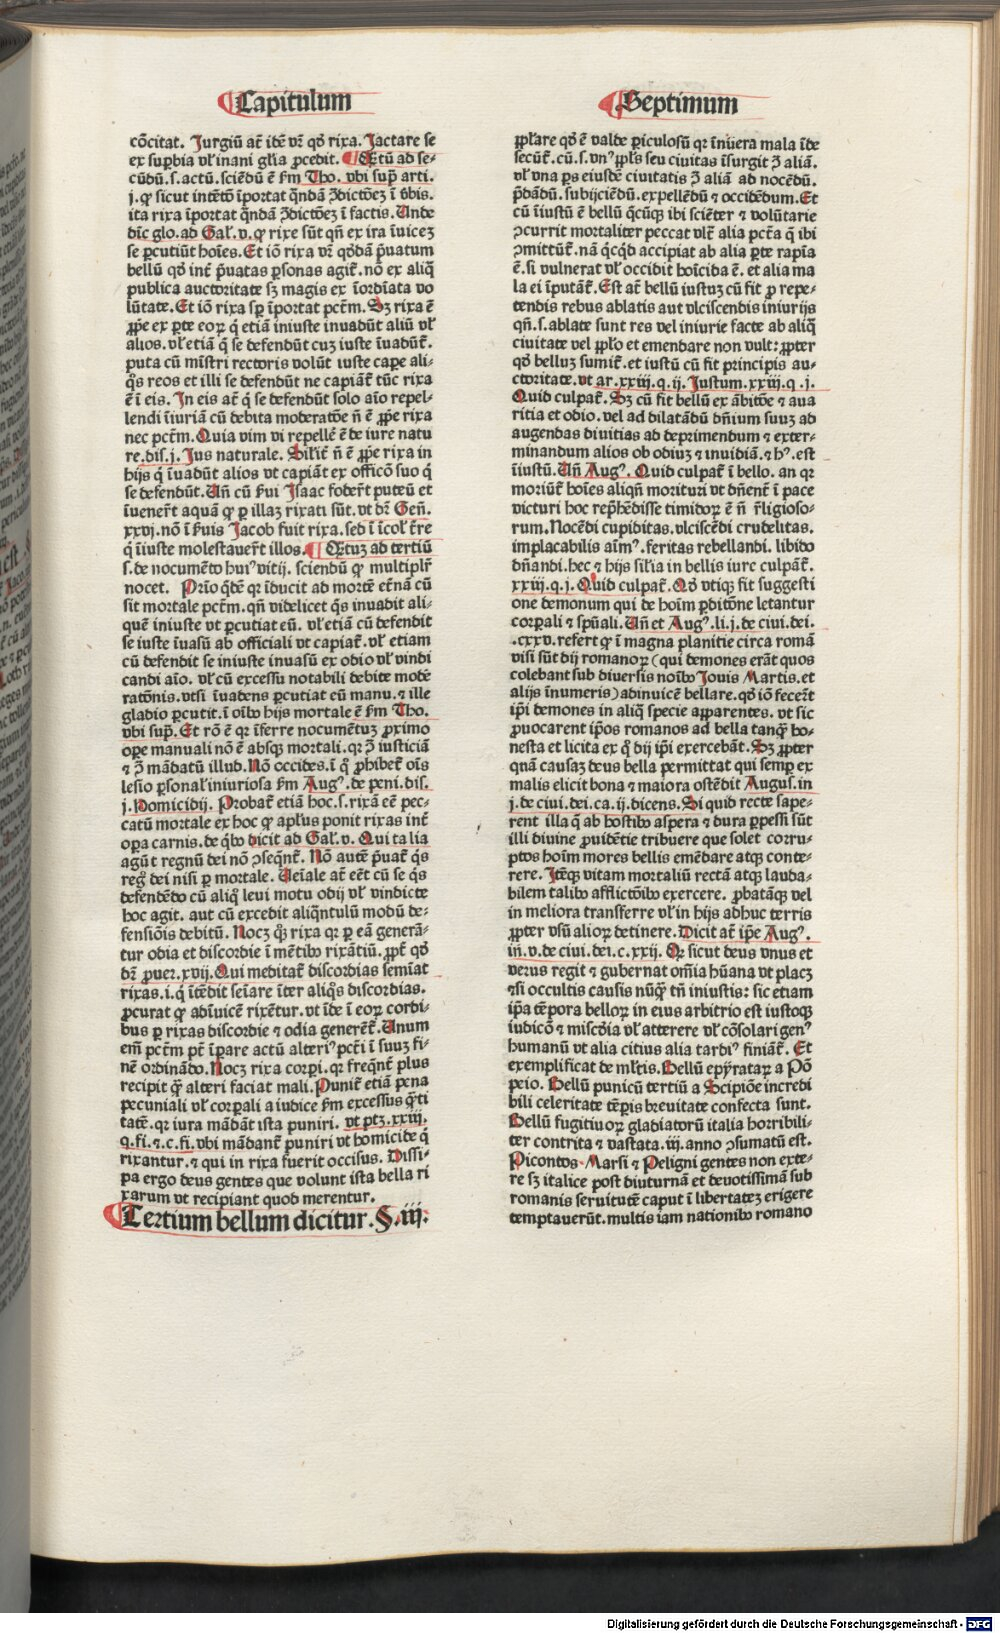 Capitulum
cōcitat. Jurgiū at̄ idē vr̄ qd̄ rixa. Jactare se
ex suꝑbia vl̓ inani gl̓ia ꝓcedit. Qr̄tū ad se-
cūdū.s.actū.sciēdū ē ẜm Tho. vbi supͣ arti.
j.ꝙ sicut intētō īportat qͣndā ꝯdictōeꝫ ī v̓bis.
ita rixa īportat qͣndā ꝯdictōeꝫ ī factis. Unde
dīc glo.ad Gal̓.v.ꝙ rixe sūt qn̄ ex ira īuiceꝫ
se ꝑcutiūt hoīes. Et iō rixa vr̄ qd̓dā pͥuatum
bellū qd̓ int̓ pͥuatas ꝑsonas agit᷑.nō ex aliqͣ
publica auctoritate sꝫ magis ex īordīata vo
lūtate. Et iō rixa sꝑ īportat pctm̄. Sꝫ rixa ē
ꝓpͥe ex ꝑte eoꝝ qͥ etiā iniuste inuadūt aliū vl̓
alios.vl̓ etiā qͥ se defendūt cuꝫ iuste īuadūt᷑.
puta cū mīstri rectoris volūt iuste caꝑe ali-
qͦs reos et illi se defendūt ne capiāt᷑ tūc rixa
ē ī eis. In eis at̄ qͥ se defendūt solo aīo repel-
lendi īiuriā cū debita moderatōe n̄ ē ꝓpͥe rixa
nec pctm̄. Quia vim vi repellē̓ ē de iure natu
re.dis.j. Jus naturale. Sil̓it᷑ n̄ ē ꝓpͥe rixa in
hijs qͥ īuadūt alios vt capiāt ex officō suo qͥ
se defendūt. Un̄ cū ẜui Isaac foder̄t puteū et
īuener̄t aquā ꝙ ꝑ illaꝫ rixati sūt.vt dr̄ Gen̄.
xxvj.nō ī ẜuis Jacob fuit rixa.sed ī īcol̓ tr̄e
qͥ īiuste molestauer̄t illos. Qr̄tuꝫ ad tertiū
s.de nocumēto huiꝰ vitij.sciendū ꝙ multipl̓r
nocet. Prīo qͥdē qꝛ īducit ad mortē et̓nā cū
sit mortale pctm̄.qn̄ videlicet qͥs inuadit ali-
quē iniuste vt ꝑcutiat eū. vl̓ etiā cū defendit
se iuste īuasū ab officiali vt capiat᷑.vl̓ etiam
cū defendit se iniuste inuasū ex odio vl̓ vindi
candi aīo. vl̓ cū excessu notabili debite mode
ratōnis.vtsi īuadens ꝑcutiat eū manu.⁊ ille
gladio ꝑcutit.ī oībꝰ hijs mortale ē ẜm Tho.
vbi supͣ. Et rō ē qꝛ īferre nocumētuꝫ ꝓximo
oꝑe manuali nō ē absqꝫ mortali.qꝛ ꝯ̄ iusticiā
⁊ ꝯ̄ mādatū illud. Nō occides.ī qͦ ꝓhibet᷑ oīs
lesio ꝑsonal̓ iniuriosa ẜm Augꝰ.de peni.dis.
j. Homicidij. Probat᷑ etiā hoc.s.rixā eē pec-
catū mortale ex hoc ꝙ apl̓us ponit rixas int̓
oꝑa carnis.de qͥbꝰ dicit ad Gal̓.v. Qui talia
agūt regnū dei nō ꝯseqͣnt᷑. Nō autē pͥuat᷑ qͥs
regͦ dei nisi ꝑ mortale. Ueīale at̄ eēt cū se qͥs
defendēdo cū aliqͦ leui motu odij vl̓ vindicte
hoc agit. aut cū excedit aliqͣntulū modū de-
fensiōis debitū. Nocꝫ qͦꝫ rixa qꝛ ꝑ eā generā-
tur odia et discordie ī mētibꝰ rixātiū.ꝓpt̓ qd̓
dr̄ ꝓuer.xvij. Qui meditat᷑ discordias semīat
rixas.i.qͥ ītēdit seīare īter aliqͦs discordias.
ꝓcurat ꝙ adīuicē rixētur.vt īde ī eoꝝ cordi-
bus ꝑ rixas discordie ⁊ odia generēt᷑. Unum
em̄ pctm̄ pt̄ īpare actū alteriꝰ pcti ī suuꝫ fi-
nē ordināᷠdo. Nocꝫ rixa corpi.qꝛ freqͣnt᷑ plus
recipit qͣꝫ alteri faciat mali. Punit᷑ etiā pena
pecuniali vl̓ corꝑali a iudice ẜm excessus qͣti
tatē.qꝛ iura mādāt ista puniri. vt ptꝫ.xxiij.
q.fi.⁊.c.fi.vbi mādant᷑ puniri vt homicide qͥ
rixantur.⁊ qui in rixa fuerit occisus. Dissi-
pa ergo deus gentes que volunt ista bella ri
xarum vt recipiant quod merentur.
Tertium bellum dicitur. §.iij.
Septimum
ꝓpl̓are qd̓ ē valde ꝑiculosū qꝛ īnūera mala īde
secūt᷑.cū.s.vnꝰ ꝓpl̓s seu ciuitas īsurgit ꝯ̄ aliā.
vl̓ vna ꝑs eiusdē ciuitatis ꝯ̄ aliā ad nocēdū.
p̄dādū.subijciēdū.expellēdū ⁊ occidēdum. Et
cū īiustū ē bellū qͥcūqꝫ ibi sciēter ⁊ volūtarie
ꝯcurrit mortaliter peccat vlt̓ alia pctā qͥ ibi
ꝯmittūt᷑.nā qͥcqͥd accipiat ab alia ꝑte rapīa
ē.si vulnerat vl̓ occidit hoīcida ē. et alia ma
la ei īputāt᷑. Est at̄ bellū iustuꝫ cū fit ꝓ repe-
tendis rebus ablatis aut vlciscendis iniurijs
qn̄.s.ablate sunt res vel iniurie facte ab aliqͣ
ciuitate vel ꝓpl̓o et emendare non vult:ꝓpter
qd̓ belluꝫ sumit᷑.et iustū cū fit principis au-
ctoritate.vt ar.xxiij.q.ij. Justum.xxiij.q.j.
Quid culpat᷑. Sꝫ cū fit bellū ex ābitōe ⁊ aua
ritia et odio.vel ad dilatādū dn̄ium suuꝫ ad
augendas diuitias ad deprimendum ⁊ exter-
minandum alios ob odiuꝫ ⁊ inuidiā.⁊ hꝰ.est
īiustū. Un̄ Augꝰ. Quid culpat᷑ ī bello. an qꝛ
moriūt᷑ hoīes aliqn̄ morituri vt dn̄ent᷑ ī pace
victuri hoc rep̄hēdisse timidoꝝ ē n̄ r̓ligioso-
rum. Nocēdi cupiditas.vlciscēdi crudelitas.
implacabilis aīmꝰ.feritas rebellandi.libido
dn̄andi.hec ⁊ hijs sil̓ia in bellis iure culpāt᷑.
xxiij.q.j. Quid culpat᷑. Qd̓ vtiqꝫ fit suggesti
one demonum qui de hoīm ꝑditōne letantur
corꝑali ⁊ spūali. Un̄ et Augꝰ.li.j.de ciui.dei.
.cxxv.refert ꝙ ī magna planitie circa romā
visi sūt dij romanoꝝ (qui demones erāt quos
colebant sub diuersis noībꝰ Jouis Martis.et
alijs īnumeris) adinuicē bellare.qd̓ iō fecer̄t
ip̄i demones in aliqͣ specie apparentes. vt sic
ꝓuocarent ip̄os romanos ad bella tanqͣꝫ ho-
nesta et licita ex qͦ dij ip̄i exercebāt. Sꝫ ꝓpter
quā causaꝫ deus bella permittat qui semꝑ ex
malis elicit bona ⁊ maiora ostēdit Augus.in
j.de ciui.dei.ca.ij.dicens. Si quid recte sape-
rent illa qͥ ab hostibꝰ aspera ⁊ dura ꝑpessi sūt
illi diuine ꝓuidētie tribuere que solet coꝛru-
ptos hoīm mores bellis emēdare atqꝫ conte-
rere. Itēqꝫ vitam mortaliū rectā atqꝫ lauda-
bilem talibꝰ afflictōibꝰ exercere. ꝓbatāqꝫ vel
in meliora transferre vl̓ in hijs adhuc terris
ꝓpter vsū alioꝝ detinere. Dicit at̄ ip̄e Augꝰ.
in̄.v.de ciui.dei.c.xxij. Qꝛ sicut deus vnus et
verus regit ⁊ gubernat oīa hūana vt placꝫ
⁊si occultis causis nūqͣꝫ tn̄ iniustis: sic etiam
ip̄a tēpora belloꝝ in eius arbitrio est iustoqꝫ
iudicō ⁊ misc̓dia vl̓ atterere vl̓ cōsolari genꝰ
humanū vt alia citius alia tardiꝰ finiāt᷑. Et
exemplificat de ml̓tis. Bellū epyrataꝝ a Pō
peio. Bellū punicū tertiū a Scipiōe incredi
bili celeritate tēꝑis breuitate confecta sunt.
Bellū fugitiuoꝝ gladiatorū italia horribili-
ter contrita ⁊ vastata.iij.anno ꝯsumatū est.
Picontos. Marsi ⁊ Peligni gentes non exte-
re sꝫ italice post diuturnā et deuotissimā sub
romanis seruitutē caput ī libertateꝫ erigere
temptauerūt.multis iam nationibꝰ romano
Digitalisierung gefördert durch die Deutsche Forschungsgemeinschaft - DFG